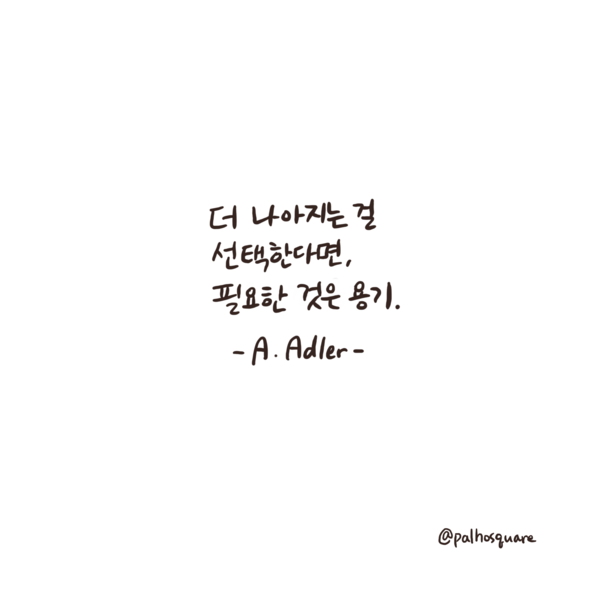 더 나아지는 걸
선택한다면,
필요한 것은 용기.
- A. Adler -
@palhosquare